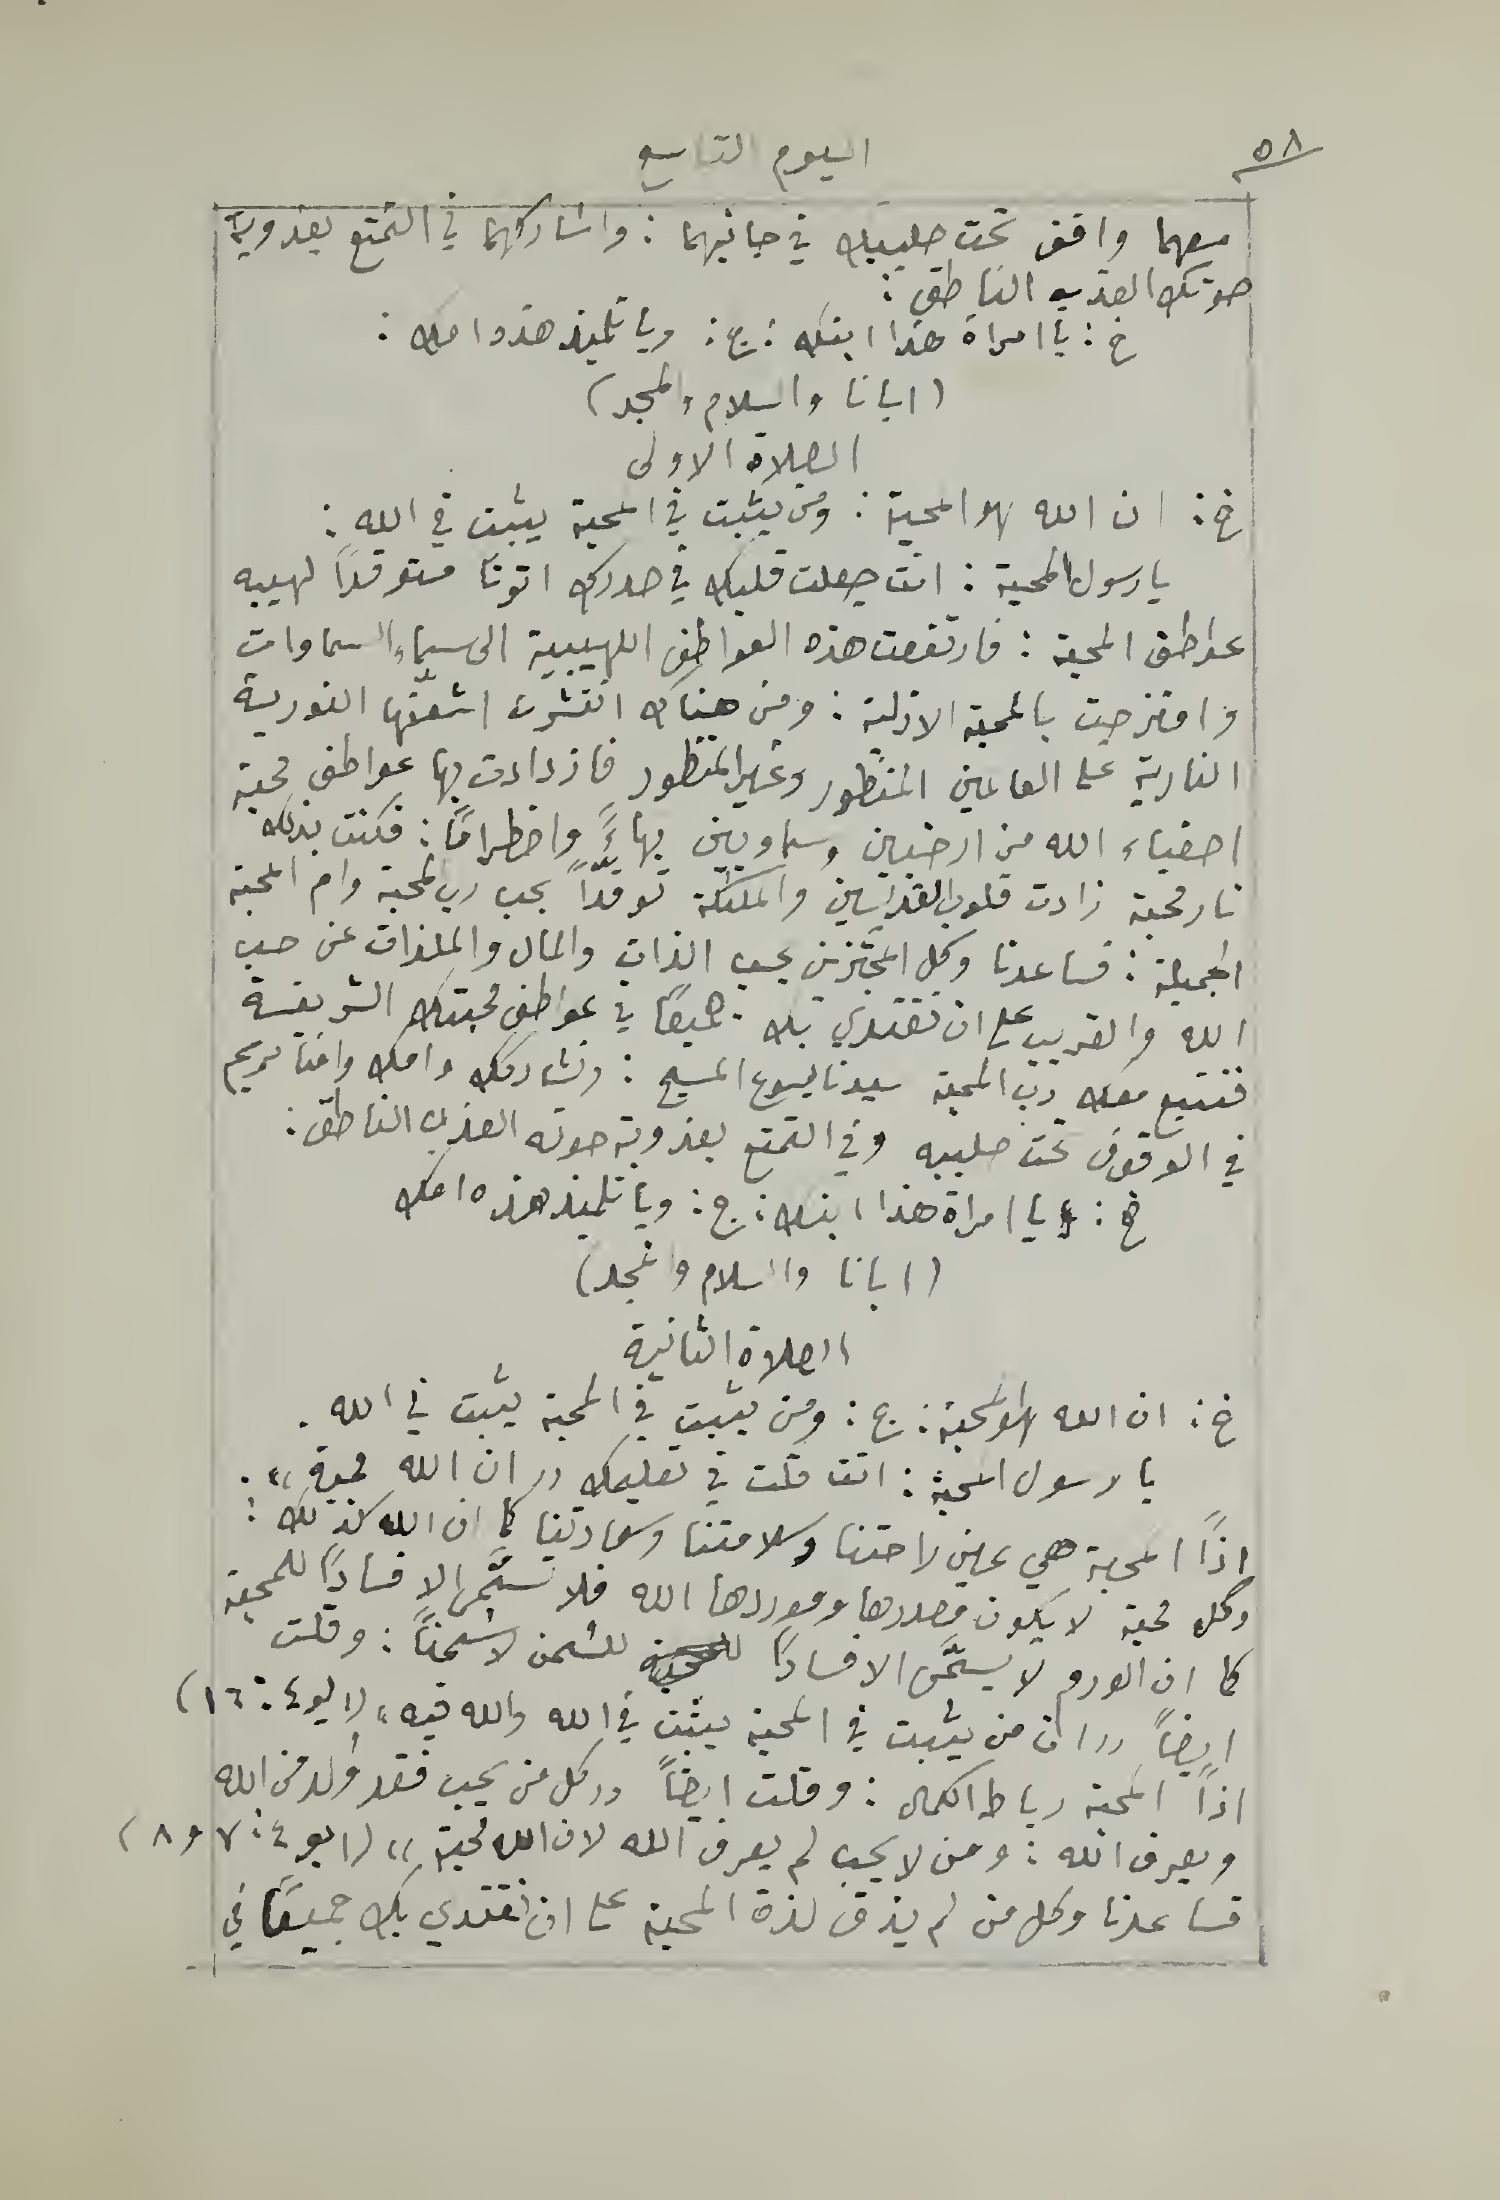 ٥٨
اليوم التاسع
معهما واقف تحت صليبك في جانبهما : واشاركهما في التمتع بعذوبة
صوتك العذب الناطق :
خ : يا امراة هذا ابنك : ج : ويا تلميذ هذه امك :
(ابانا والسلام والمجد)
الصلاة الاولى
خ : ان الله هو المحبة : ومن يثبت في المحبة يثبت في الله :
يا رسول المحبة : انت جعلت قلبك في صدرك اتونًا متوقدًا لهيبه
عواطف المحبة : فارتفعت هذه العواطف اللهيبية الى سماء السماوات
وامتزجت بالمحبة الازلية : ومن هناك انتشرت اشعّتها النورية
النارية على العالمين المنظور وغير المنظور فازدادت بها عواطف محبة
اصفياء الله من ارضيين وسماويين بهاءً واضطرامًا : فكنت بذلك
نار محبة زادت قلوب القديسين والملئكة توقّدًا بحب رب المحبة وام المحبة
الجميلة : فساعدنا وكل المجتزين بحب الذات والمال والملذات عن حب
الله والقريب على ان نقتدي بك جميعًا في عواطف محبتك الشريفة
فنتبع معك رب المحبة سيدنا يسوع المسيح : ونشاركك وامك وامّنا مريم
في الوقوف تحت صليبه وفي التمتع بعذوبة صوته العذب الناطق :
خ : يا امراة هذا ابنك : ج : ويا تلميذ هذه امك
(ابانا والسلام والمجد)
الصلاة الثانية
خ : ان الله هو المحبة : ج : ومن يثبت في المحبة يثبت في الله .
يا رسول المحبة : انت قلت في تعليمك « ان الله محبة » .
اذًا المحبة هي عين راحتنا وسلامتنا وسعادتنا كما ان الله كذلك :
وكل محبة لا يكون مصدرها وموردها الله فلا تسمَّى الا فسادًا للمحبة
كما ان الورم لا يسمَّى الا فسادًا للسمن لا سمنًا : وقلت
ايضًا « ان من يثبت في المحبة يثبت في الله والله فيه » (١ يو ٤ : ١٦)
اذًا المحبة رباط الكمال : وقلت ايضًا « كل من يحب فقد وُلد من الله
ويعرف الله : ومن لا يحب لم يعرف الله لان الله محبة » (١ يو ٤ : ٧ و ٨)
فساعدنا وكل من لم يذق لذة المحبة على ان نقتدي بك جميعًا في